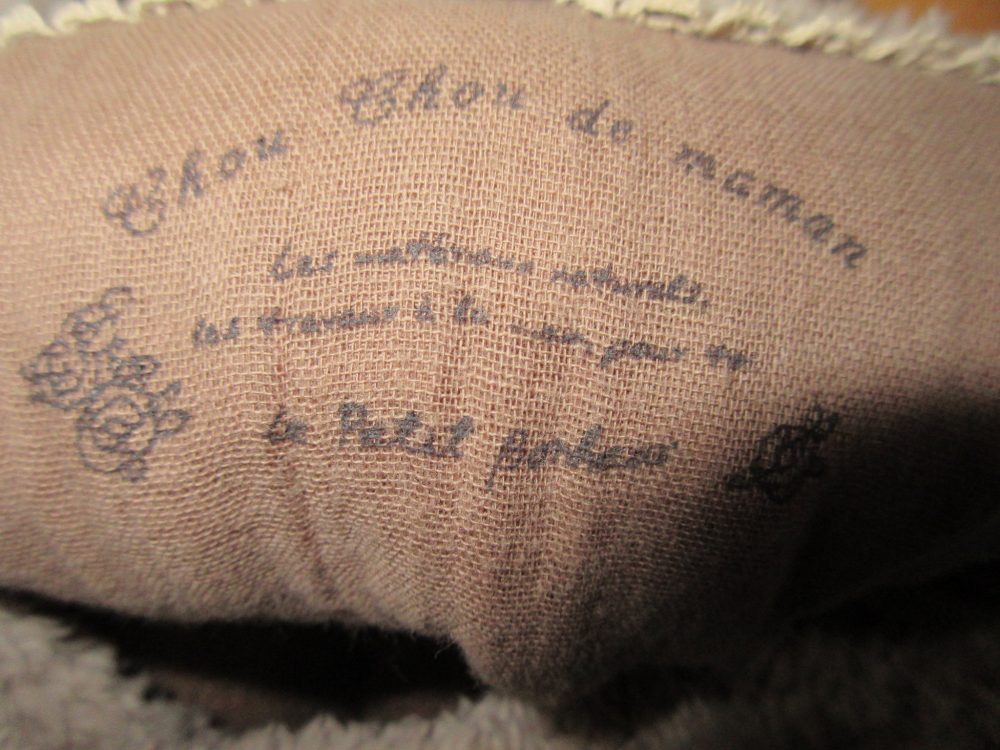 Chou Chou de maman
Les matériaux naturels.
les travaux à la
Le Petit bonheur